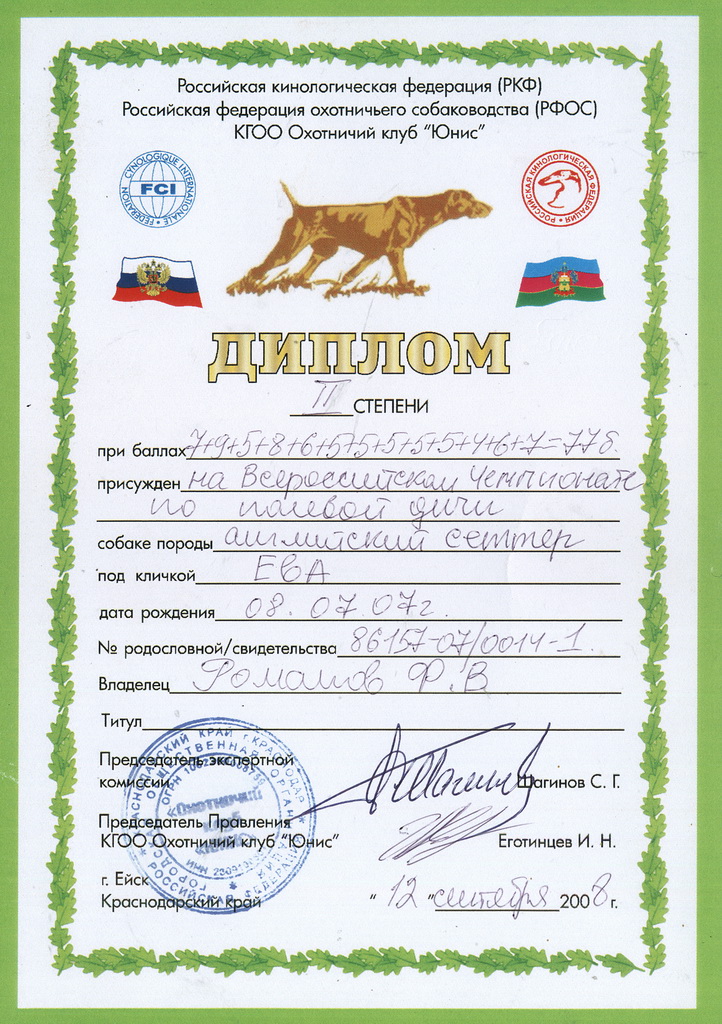 Российская кинологическая федерация (РКФ)
Российская федерация охотничьего собаководства (РФОС)
КГОО Охотничий клуб "Юнис"
FEDERATION CYNOLOGIQUE INTERNATIONALE
FCI
РОССИЙСКАЯ КИНОЛОГИЧЕСКАЯ ФЕДЕРАЦИЯ
ДИПЛОМ
II СТЕПЕНИ
при баллах 7+9+5+8+6+5+5+5+5+5+4+6+7=77б.
присужден на Всероссийском Чемпионате
по полевой дичи
собаке породы английский сеттер
под кличкой ЕВА
дата рождения 08.07.07г.
№ родословной/свидетельства 86157-07/0014-1
Владелец Ф.В
Титул
Председатель экспертной
комиссии Шагинов С. Г.
Председатель Правления
КГОО Охотничий клуб "Юнис" Еготинцев И. Н.
г. Ейск
Краснодарский край " 12 " сентября 2008 г.